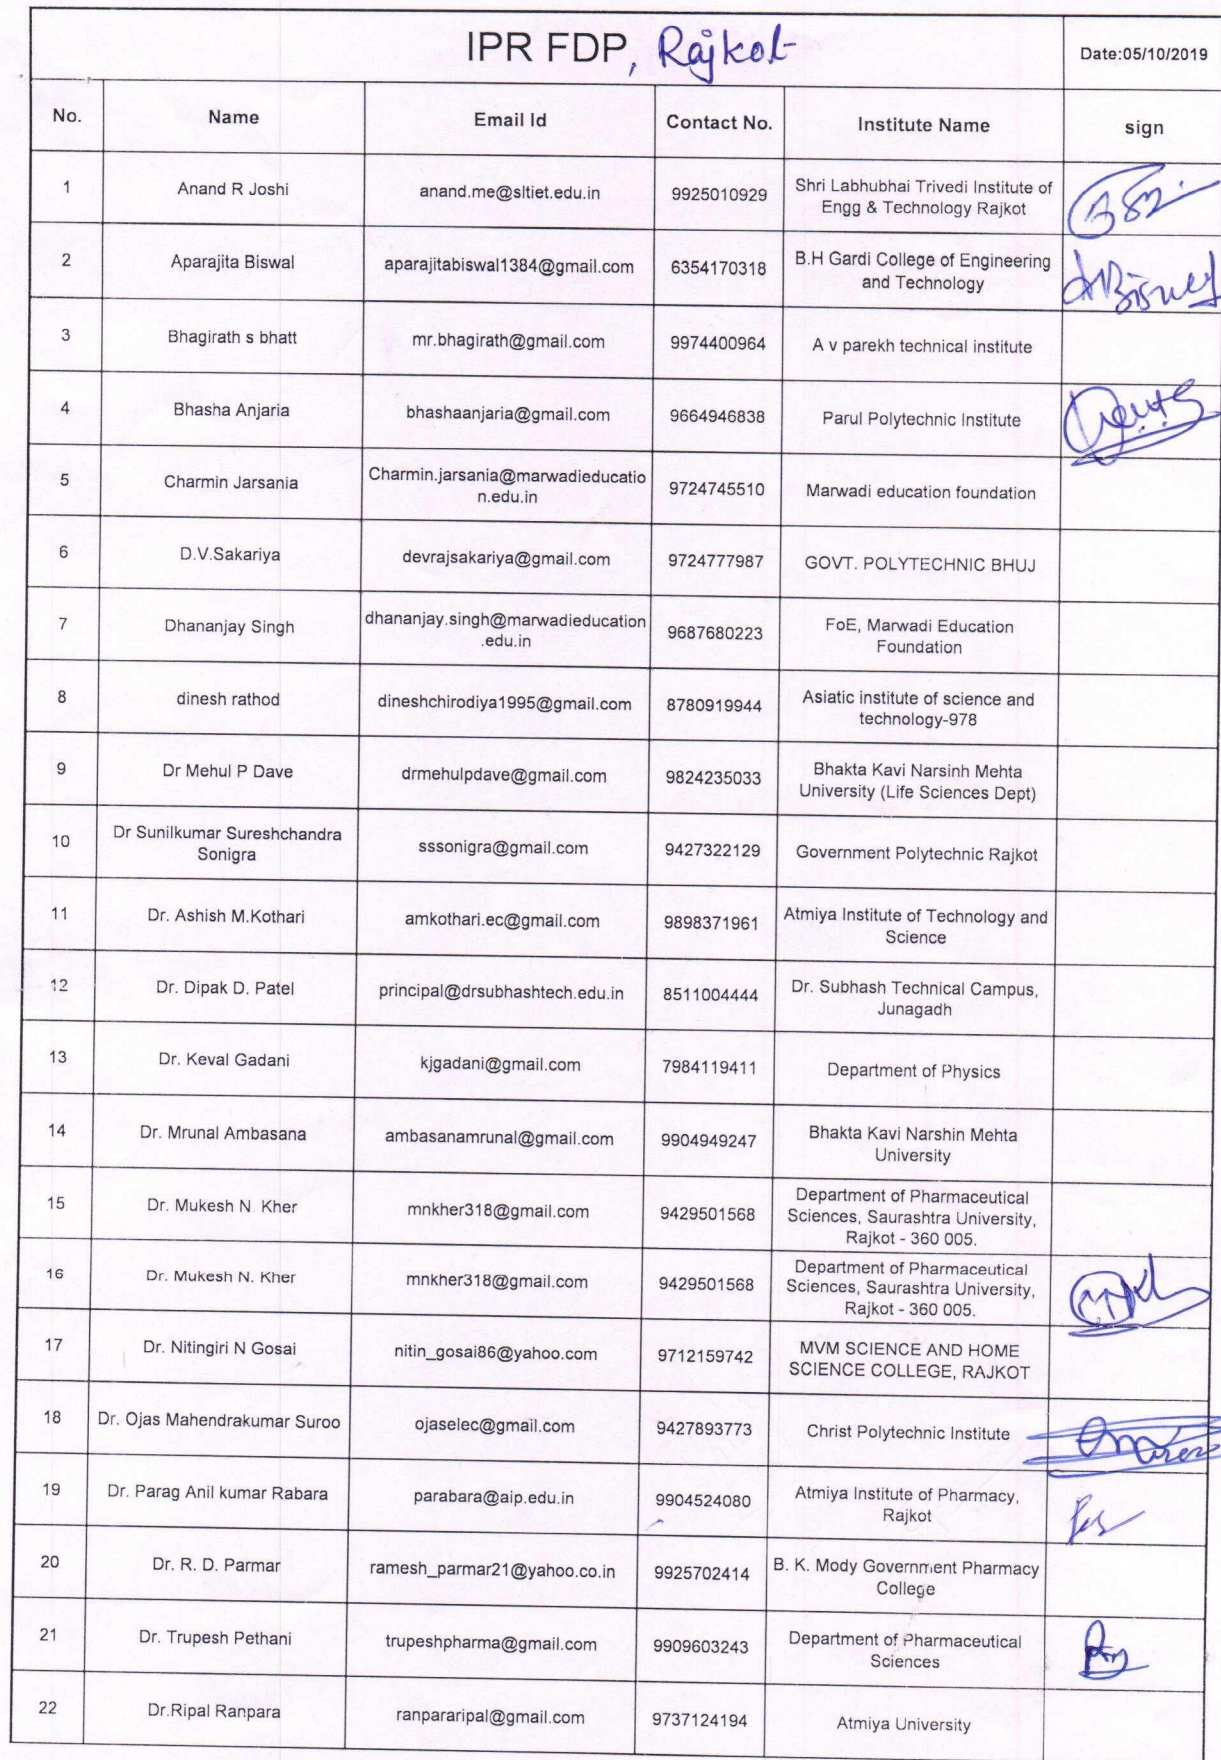 IPR FDP, Rajkot
Date:05/10/2019
No. Name Email Id Contact No. Institute Name sign
1 Anand R Joshi anand.me@sltiet.edu.in 9925010929 Shri Labhubhai Trivedi Institute of
Engg & Technology Rajkot
2 Aparajita Biswal aparajitabiswal1384@gmail.com 6354170318 B.H Gardi College of Engineering
and Technology
3 Bhagirath s bhatt mr.bhagirath@gmail.com 9974400964 A v parekh technical institute
4 Bhasha Anjaria bhashaanjaria@gmail.com 9664946838 Parul Polytechnic Institute
5 Charmin Jarsania Charmin.jarsania@marwadieducatio
n.edu.in 9724745510 Marwadi education foundation
6 D.V.Sakariya devrajsakariya@gmail.com 9724777987 GOVT. POLYTECHNIC BHUJ
7 Dhananjay Singh dhananjay.singh@marwadieducation
.edu.in 9687680223 FoE, Marwadi Education
Foundation
8 dinesh rathod dineshchirodiya1995@gmail.com 8780919944 Asiatic institute of science and
technology-978
9 Dr Mehul P Dave drmehulpdave@gmail.com 9824235033 Bhakta Kavi Narsinh Mehta
University (Life Sciences Dept)
10 Dr Sunilkumar Sureshchandra
Sonigra sssonigra@gmail.com 9427322129 Government Polytechnic Rajkot
11 Dr. Ashish M.Kothari amkothari.ec@gmail.com 9898371961 Atmiya Institute of Technology and
Science
12 Dr. Dipak D. Patel principal@drsubhashtech.edu.in 8511004444 Dr. Subhash Technical Campus,
Junagadh
13 Dr. Keval Gadani kjgadani@gmail.com 7984119411 Department of Physics
14 Dr. Mrunal Ambasana ambasanamrunal@gmail.com 9904949247 Bhakta Kavi Narshin Mehta
University
15 Dr. Mukesh N. Kher mnkher318@gmail.com 9429501568 Department of Pharmaceutical
Sciences, Saurashtra University,
Rajkot - 360 005.
16 Dr. Mukesh N. Kher mnkher318@gmail.com 9429501568 Department of Pharmaceutical
Sciences, Saurashtra University,
Rajkot - 360 005.
17 Dr. Nitingiri N Gosai nitin_gosai86@yahoo.com 9712159742 MVM SCIENCE AND HOME
SCIENCE COLLEGE, RAJKOT
18 Dr. Ojas Mahendrakumar Suroo ojaselec@gmail.com 9427893773 Christ Polytechnic Institute
19 Dr. Parag Anil kumar Rabara parabara@aip.edu.in 9904524080 Atmiya Institute of Pharmacy,
Rajkot
20 Dr. R. D. Parmar ramesh_parmar21@yahoo.co.in 9925702414 B. K. Mody Government Pharmacy
College
21 Dr. Trupesh Pethani trupeshpharma@gmail.com 9909603243 Department of Pharmaceutical
Sciences
22 Dr.Ripal Ranpara ranpararipal@gmail.com 9737124194 Atmiya University